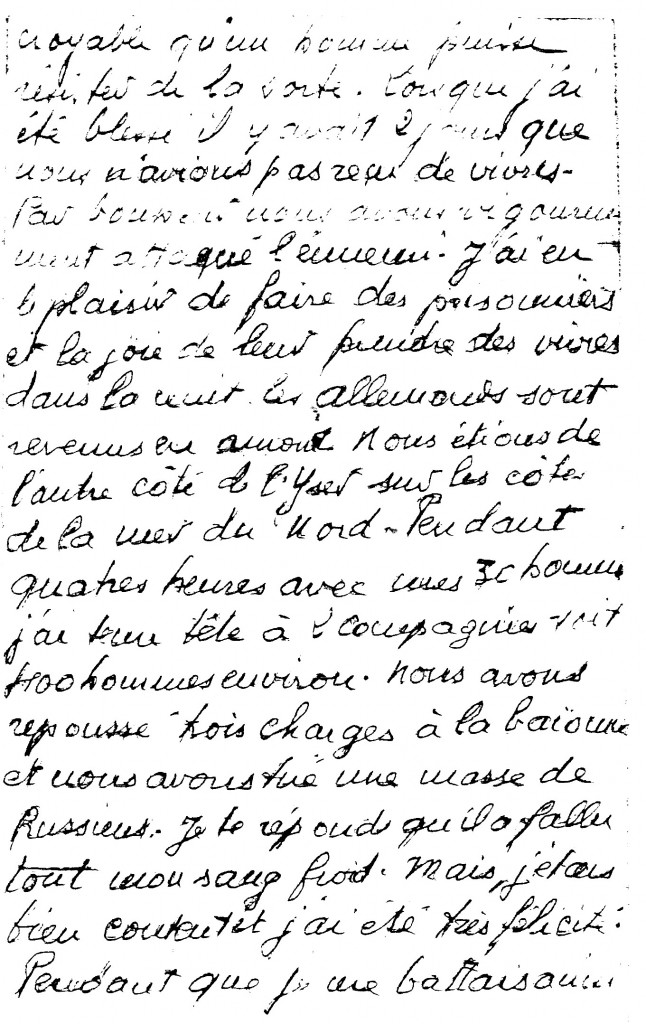 croyable qu'un homme puisse
résister de la sorte. Lorsque j'ai
été blessé il y avait 2 jours que
nous n'avions pas reçu de vivres.
Par nous avons vigoureuse
ment attaqué l'ennemi. J'ai eu
le plaisir de faire des prisonniers
et la joie de leur prendre des vivres
dans la nuit les allemands sont
revenus en Nous étions de
l'autre côté de l'Yser sur les côtes
de la mer du Nord - Pendant
quatres heures avec mes 30 hommes
j'ai tenu tête à 2 compagnies soit
400 hommes environ. Nous avons
repoussé trois charges à la baïonne
et nous avons tué une masse de
Prussiens. Je te réponds qu'il a fallu
tout mon sang froid. Mais j'étais
bien content et j'ai été très félicité.
Pendant que je me battais ainsi